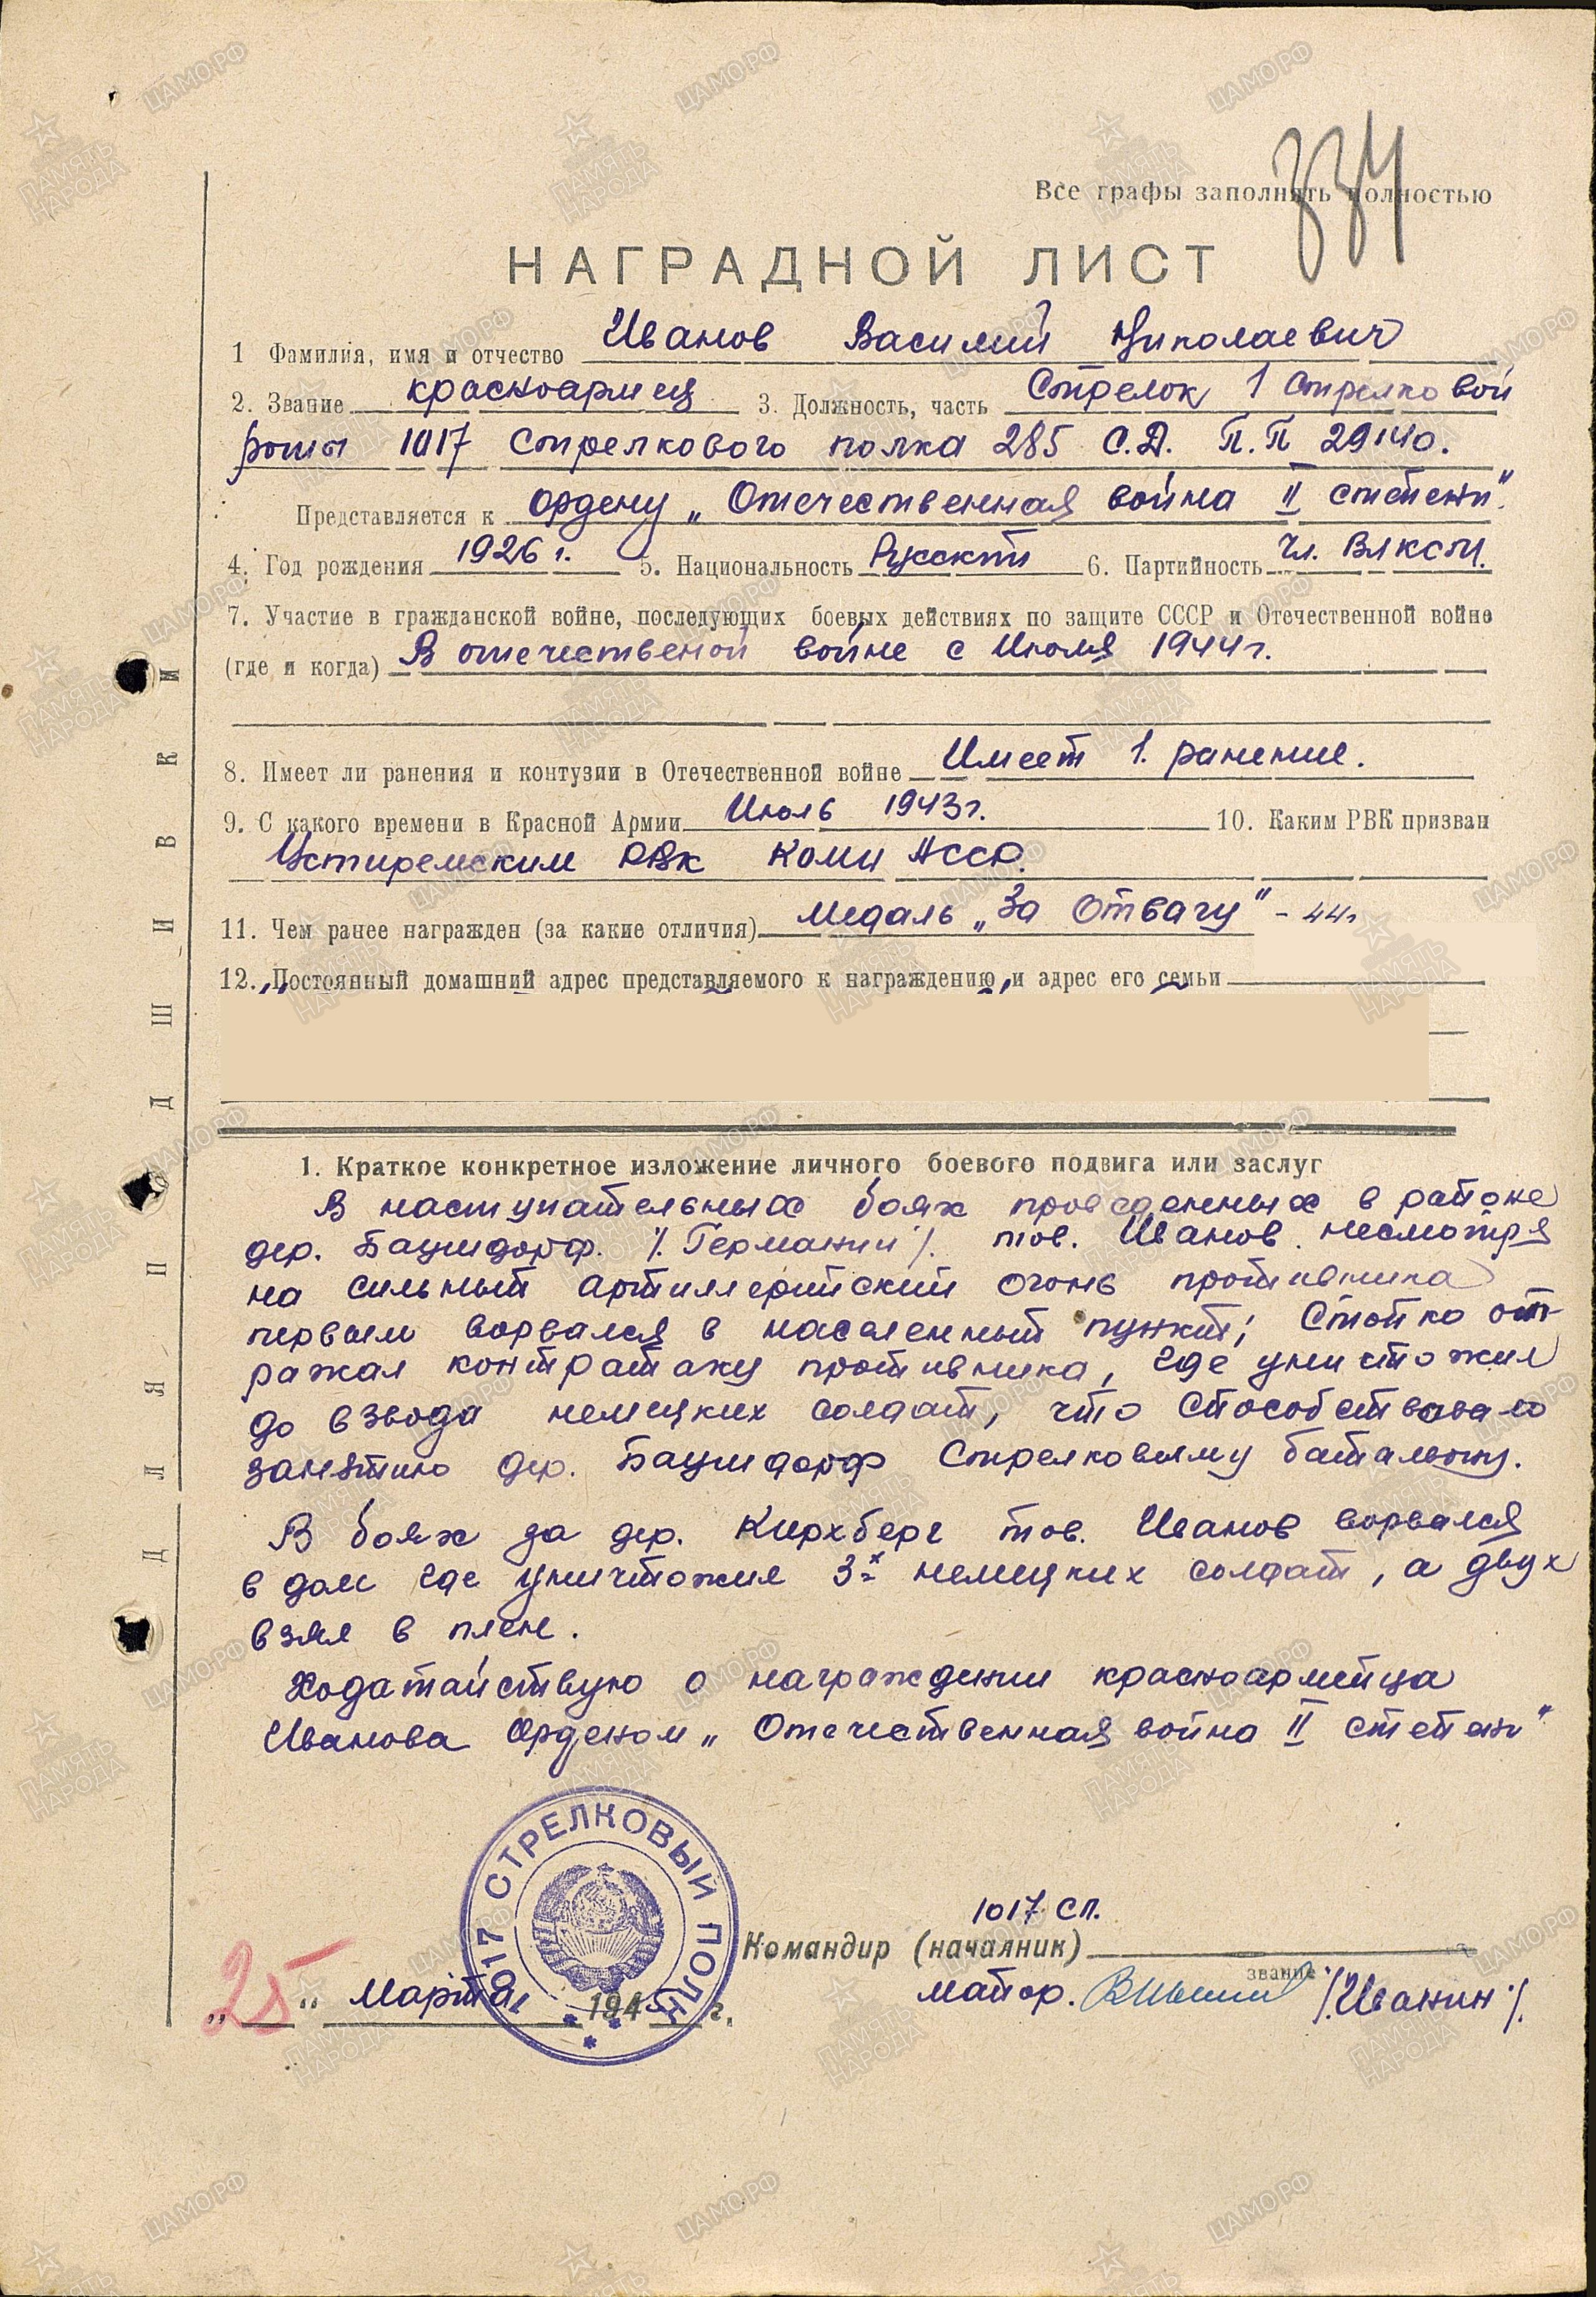 334
Все графы заполнять полностью
НАГРАДНОЙ ЛИСТ
1 Фамилия, имя и отчество Иванов Василий Николаевич
2. Звание красноармец 3. Должность, часть Стрелок 1 стрелковой
роты 1017 стрелкового полка 285 С.Д. П.П 29140.
Представляется к ордену „Отечественная война II степени".
4. Год рождения 1926 г. 5. Национальность Русский 6. Партийность Чл. ВЛКСМ.
7. Участие в гражданской войне, последующих боевых действиях по защите СССР и Отечественной войне
(где и когда) В отечественой войне с Июля 1944г.
8. Имеет ли ранения и контузии в Отечественной войне Имеет 1. ранение.
9. С какого времени в Красной Армии Июль 1943г. 10. Каким РВК призван
Устиремским РВК Коми АССР.
11. Чем ранее награжден (за какие отличия) Медаль „За Отвагу" - 44г
12. Постоянный домашний адрес представляемого к награждению и адрес его семьи
ДЛЯ ПОДШИВКИ
1. Краткое конкретное изложение личного боевого подвига или заслуг
В наступательных боях проведенных в районе
дер. Баумдорф. /. Германии /. тов. Иванов несмотря
на сильный артиллерийский огонь противника
первым ворвался в населенный пункт, Стойко от-
ражал контратаку противника, где уничтожил
до взвода немецких солдат, что способствовало
занятию дер. Баумдорф Стрелковыму батальону.
В боях за дер. Кирхберг тов. Иванов ворвался
в дом где уничтожил 3х немецких солдат, а двух
взял в плен.
Ходатайствую о награждении красноармейца
Иванова Орденом „Отечественная война II степени"
1017 СТРЕЛКОВЫЙ ПОЛК
1017 СП.
Командир (начальник)
звание
майор. /. Иванин /.
„25" Марта 1945 г.
ПАМЯТЬ НАРОДА
ЦАМО.РФ